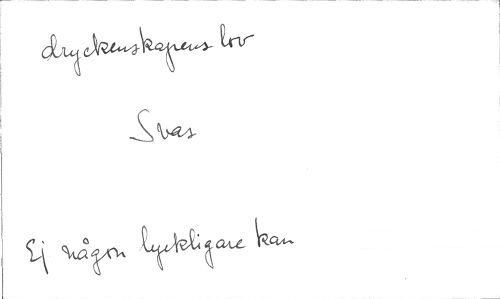 dryckenskapens lov
Svar
Ej någon lyckligare kan